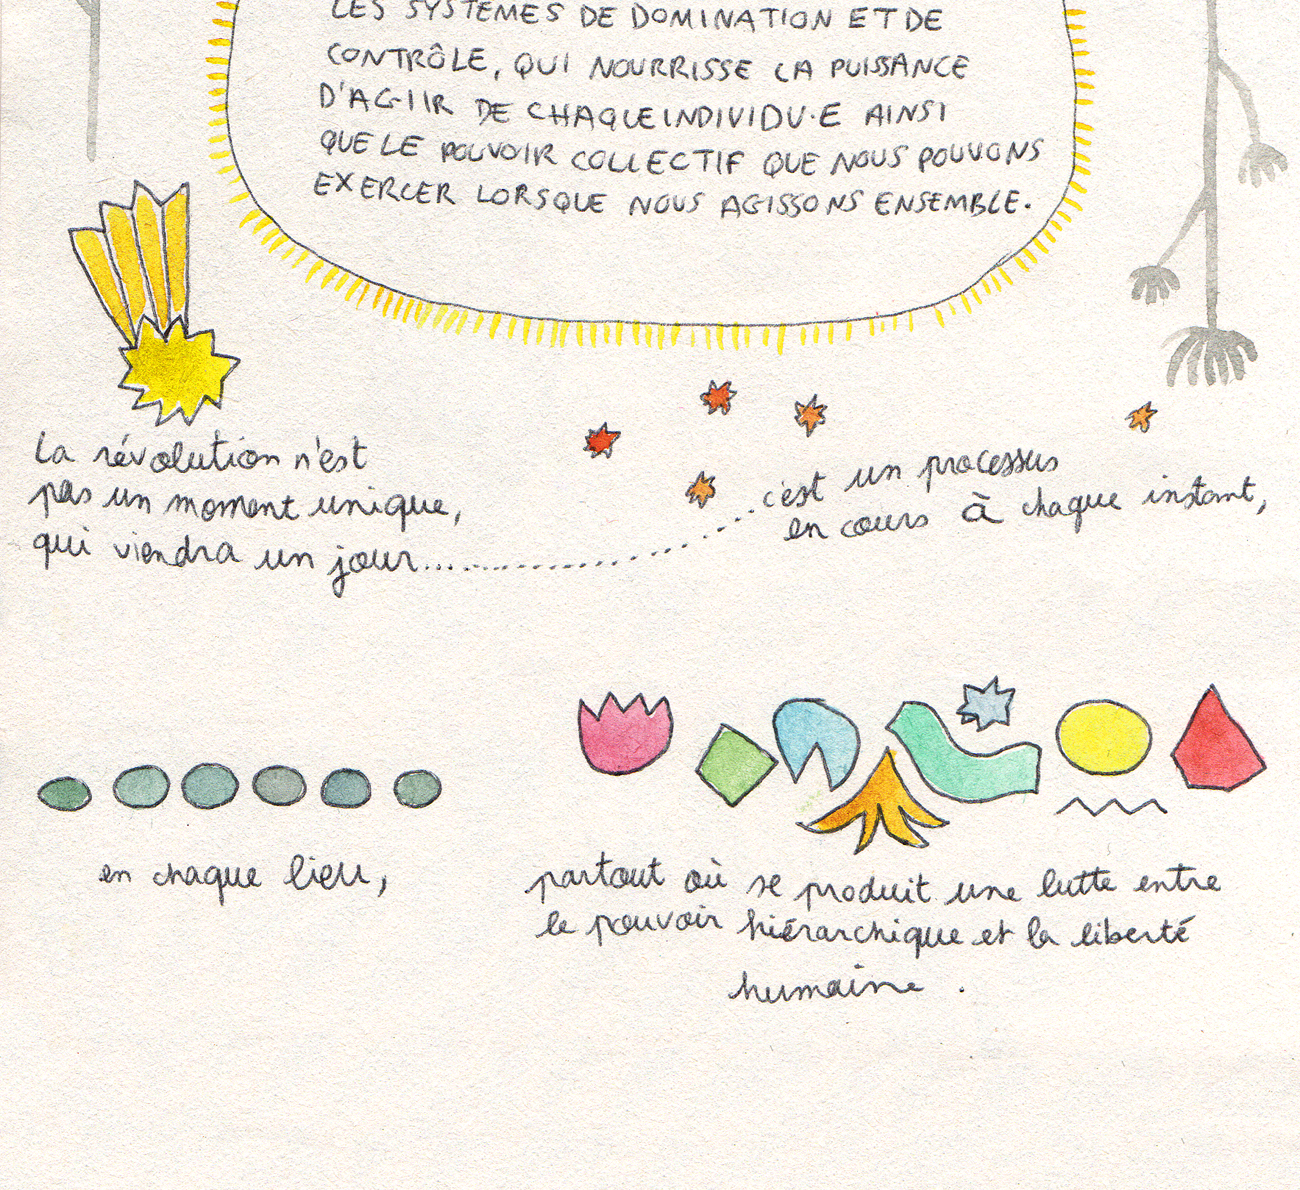 LES SYSTÈMES DE DOMINATION ET DE
CONTRÔLE, QUI NOURRISSE LA PUISSANCE
D'AGIIR DE CHAQUE INDIVIDU·E AINSI
QUE LE POUVOIR COLLECTIF QUE NOUS POUVONS
EXERCER LORSQUE NOUS AGISSONS ENSEMBLE.
La révolution n'est
pas un moment unique,
qui viendra un jour..................
c'est un processus
en cours à chaque instant,
en chaque lieu,
partout où se produit une lutte entre
le pouvoir hiérarchique et la liberté
humaine .